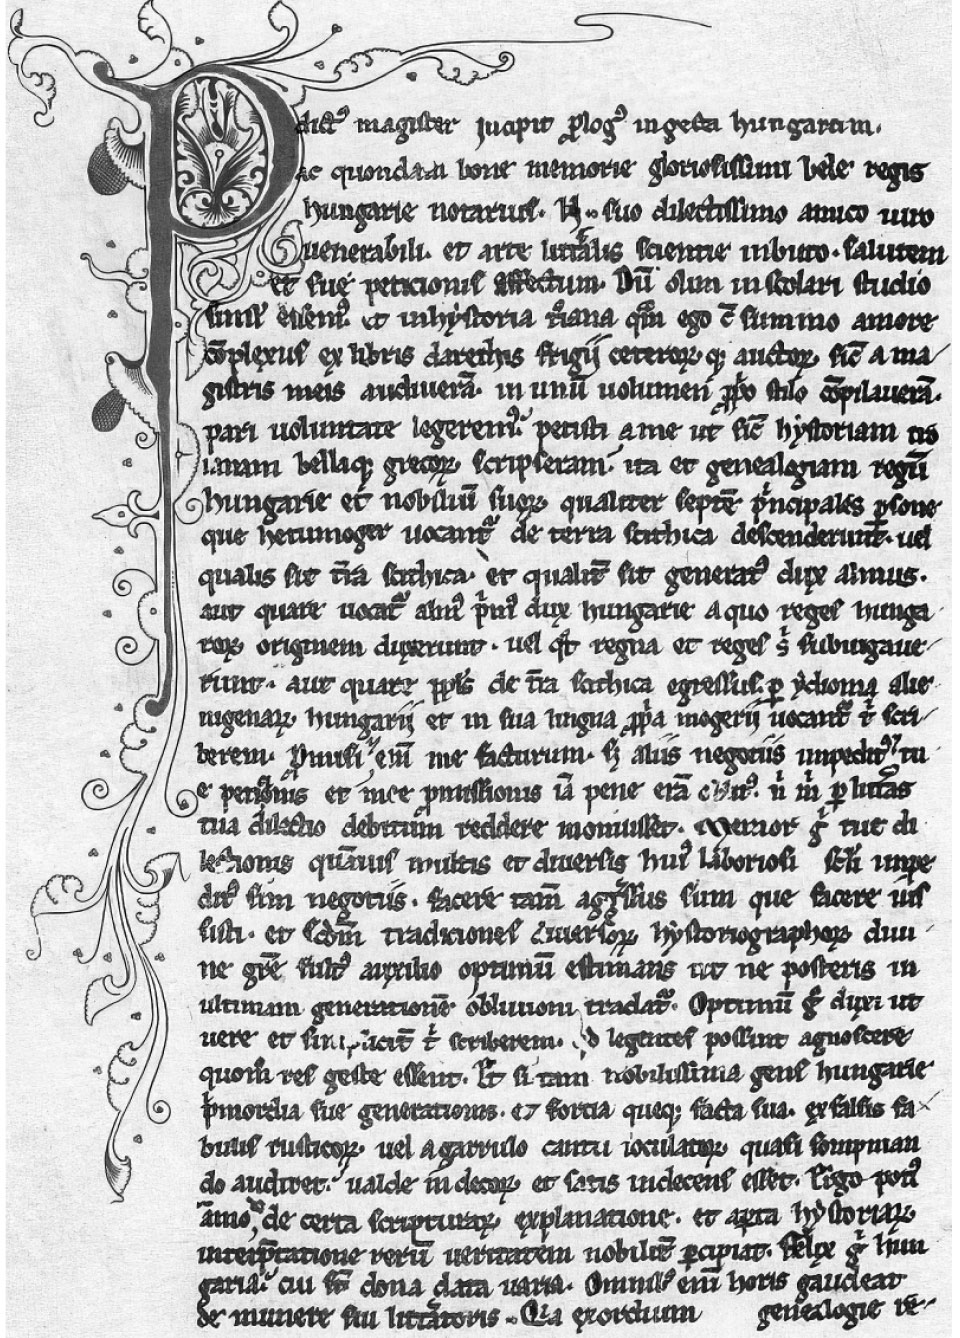 P dictꝰ magister Incipit ꝓlogꝰ in gesta hungarum.
ac quondam bone memorie gloriosissimi bele regis
hungarie notarius. N. suo dilectissimo amico uiro
uenerabili. et arte litt̄alis scientie inbuto. salutem
et sue peticionis affectum. Dū olim in scolari studio
simul essemꝰ. et in hystoria t̄iana qm̄ ego cū summo amore
cōplexus ex libris daretis frigii ceterorꝝ qꝫ auctorꝝ, sic̄ a ma
gistris meis audiuerā. in unū uolumen ꝓprio stilo cōpilauerā.
pari uoluntate legeremꝰ. petisti a me ut sic̄ hystoriam tro
ianam bellaqꝫ grecorꝝ scripseram. ita et genealogiam regū
hungarie et nobiliū suorꝝ qualiter septē p̄ncipales ꝑsone
que hetumoger uocantur̄ de terra scithica descenderunt. uel
qualis sit t̄ra scithica. et qualit̄ sit generatꝰ dux almus.
aut quare uocatur̄ almꝰ p̄mꝰ dux hungarie a quo reges hunga
rorꝝ originem duxerunt. uel qt̄ regna et reges s̄ subiugaue
runt. aut quare ppl̄s de t̄ra scithica egressus. ꝑ ydioma alie
nigenarꝝ hungarii et in sua lingua ꝓpria mogerii uocantur̄ t̄ scri
berem. Promisi eni̅ me facturum. sꝫ aliis negotiis impeditꝰ tu
e peticionis et mee promissionis iā pene erā oblitꝰ. n̄ m̄ ꝑ litt̄as
tua dilectio debitum reddere monuisset. Memor g̊ tue di
lectionis quāuis multis et diuersis huiꝰ laboriosi sc̄li impe
ditꝰ sim negotiis. facere tam̄ aggressus sum que facere ius
sisti. et scd̄m tradiciones diuersorꝝ hystoriographorꝝ diui
ne gr̄e fultꝰ auxilio optimū estimans ut ne posteris in
ultimam generationē obliuioni tradatur̄. Optimū g̊ duxi ut
uere et simpliciter t̄ scriberem. qd̄ legentes possint agnoscere
quom̄ res geste essent. Et si tam nobilissima gens hungarie
p̄mordia sue generationis. et fortia queqꝫ facta sua. ex falsis fa
bulis rusticorꝝ, uel a garrulo cantu ioculatorꝝ quasi sompnian
do audiret. ualde indecorꝝ et satis indecens esset. Ergo potiꝰ
āmodo de certa scripturarꝝ explanatione. et aperta hystoriarꝝ
interp̄tatione rerū ueritatem nobilit̄ ꝑcipiat. Felix g̊ hun
garia. cui sūt dona data uaria. Omnibꝰ eni̅ horis gaudeat
de munere sui litt̄atoris. Quia exordium genealogie re